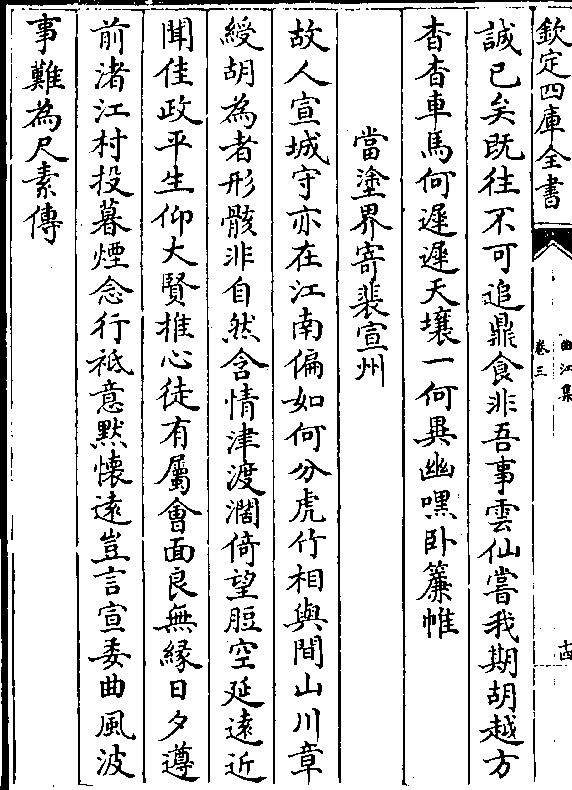 欽定四庫全書
曲江集
卷三
十四
誠已矣既往不可追鼎食非吾事雲仙嘗我期胡越方
杳杳車馬何遲遲天壤一何異幽嘿卧簾帷
當塗界寄裴宣州
故人宣城守亦在江南偏如何分虎竹相與間山川章
綬胡為者形骸非自然含情津渡濶倚望脰空延遠近
聞佳政平生仰大賢推心徒有屬會面良無緣日夕遵
前渚江村投暮煙念行祗意默懐逺豈言宣委曲風波
事難為尺素傳